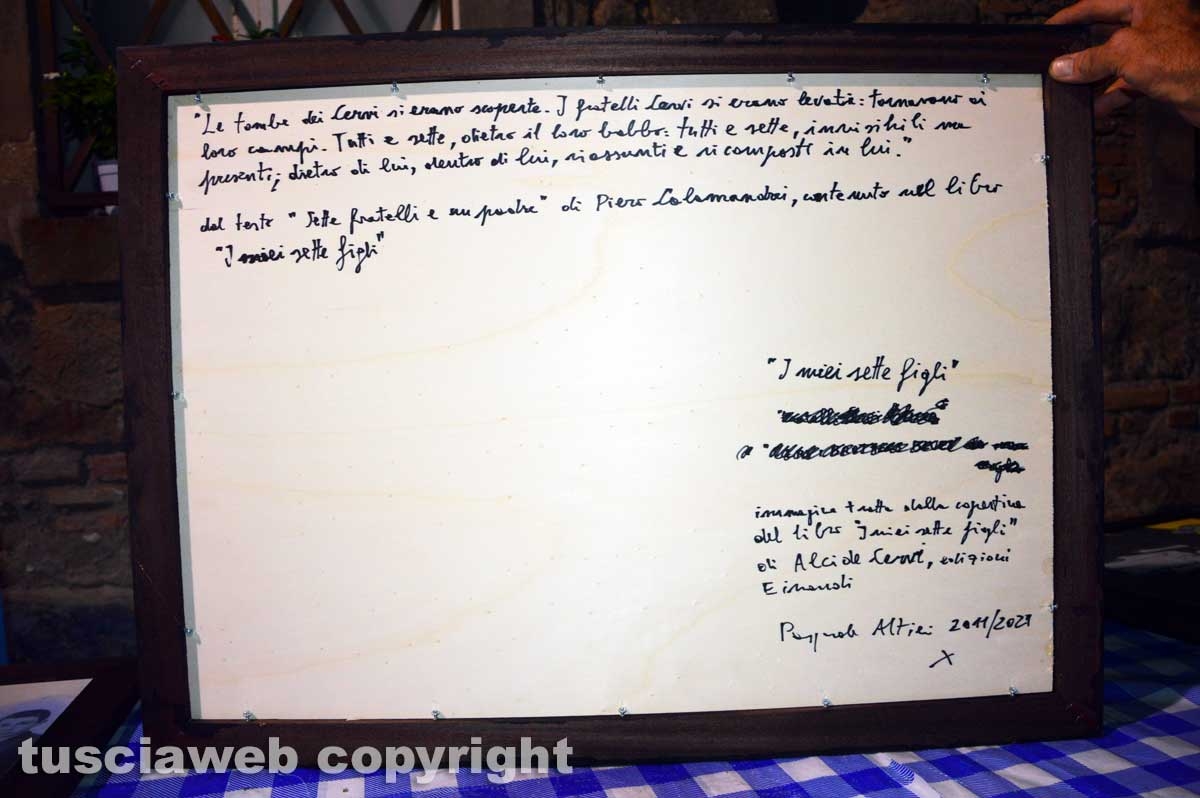 "Le tombe dei Cervi si erano scoperte. I fratelli Cervi si erano levati: tornavano ai
loro campi. Tutti e sette, dietro il loro babbo: tutti e sette, invisibili ma
presenti; dietro di lui, dentro di lui, riassunti e ricomposti in lui."
dal testo "Sette fratelli e un padre" di Piero Calamandrei, contenuto nel libro
"I miei sette figli"
"I miei sette figli"
immagine tratta dalla copertina
del libro "I miei sette figli"
di Alcide Cervi, edizioni
Einaudi
Pasquale Altieri 2011/2021
X
tusciaweb copyright